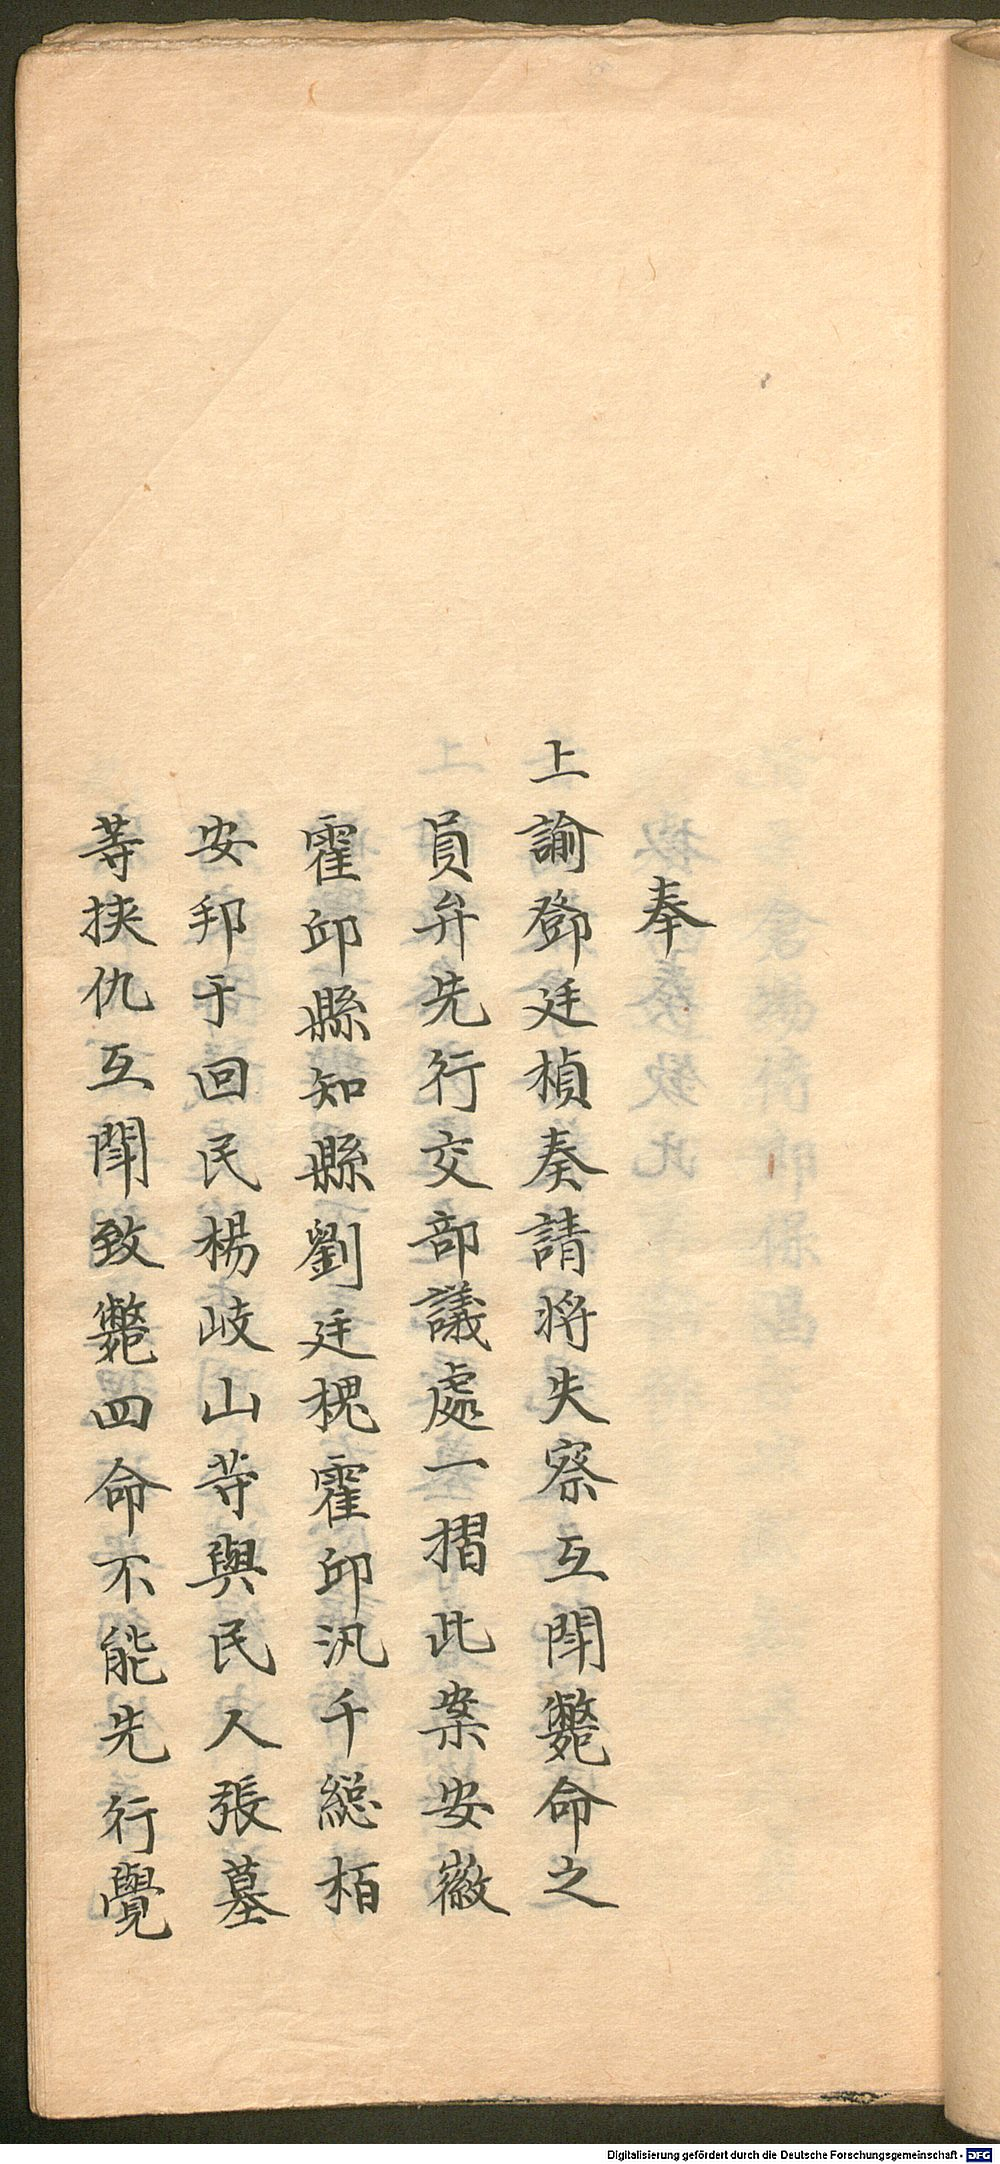 奉
上諭鄧廷楨奏請將失察互鬬斃命之
員弁先行交部議處一摺此案安徽
霍邱縣知縣劉廷槐霍邱汛千総栢
安邦于回民楊岐山䓁與民人張墓
䓁挾仇互鬬致斃四命不能先行覺
Digitalisierung gefördert durch die Deutsche Forschungsgemeinschaft - DFG